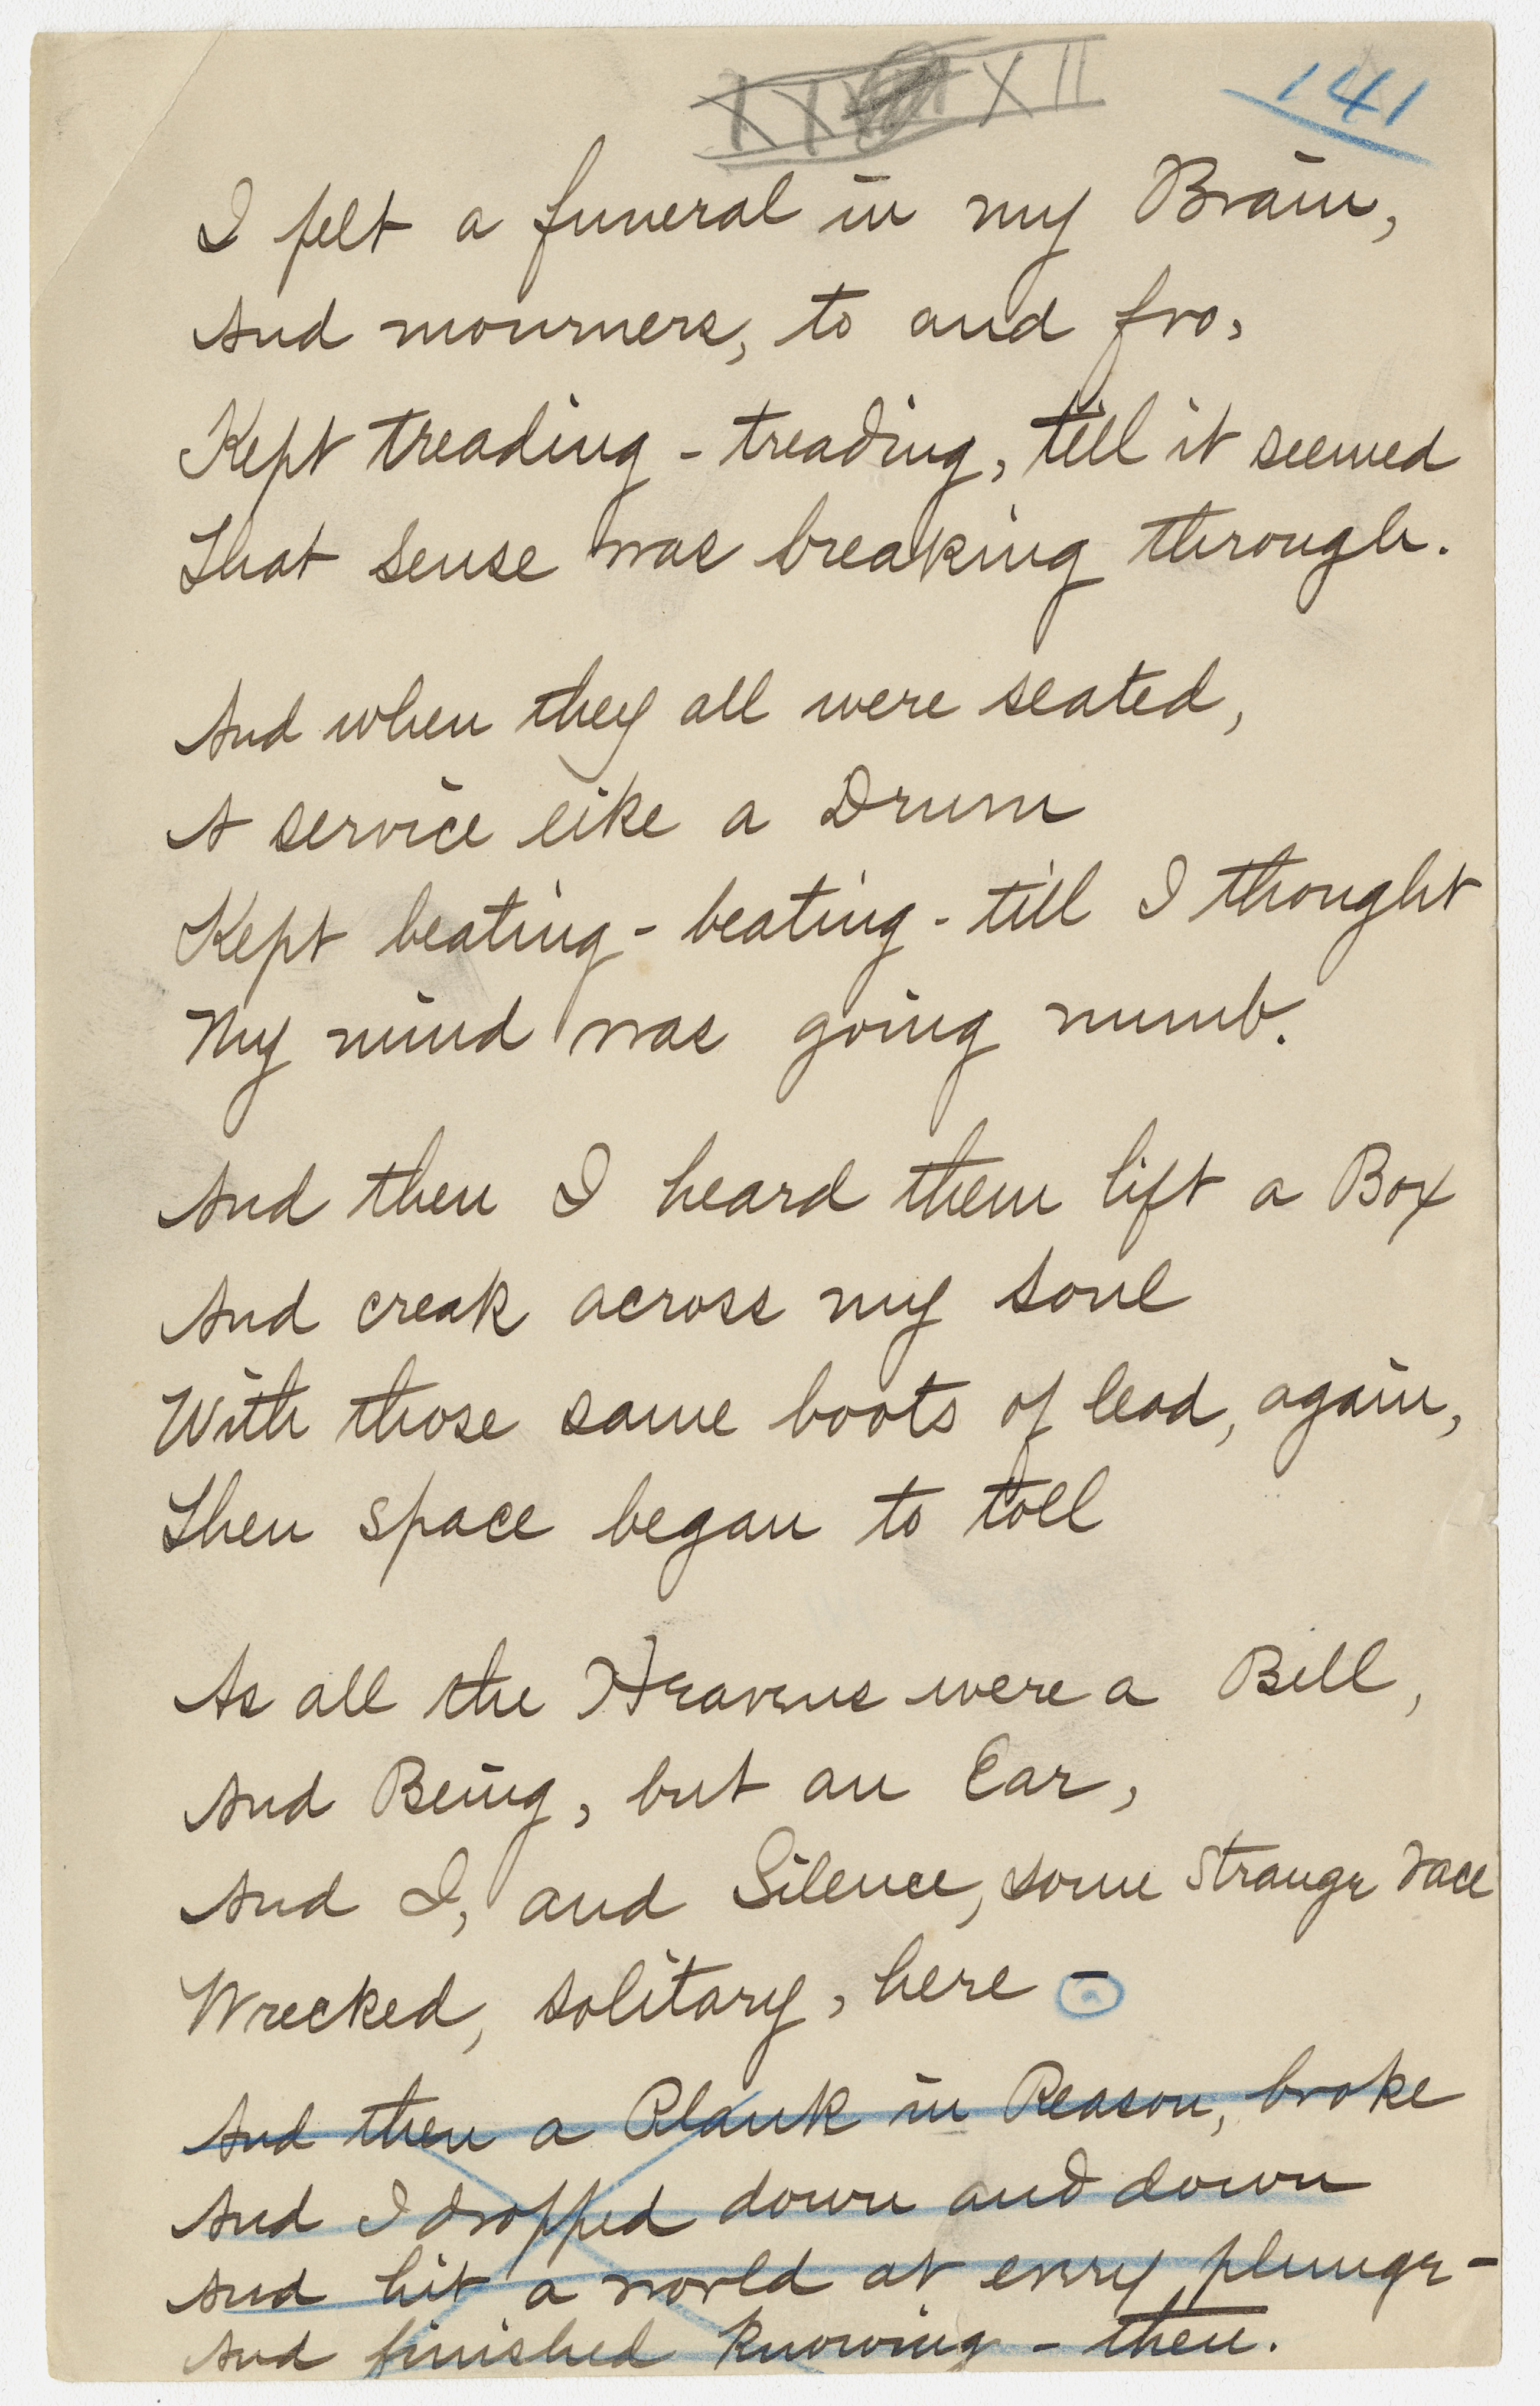 XII
141
I felt a funeral in my Brain,
And mourners, to and fro,
Kept treading - treading, till it seemed
That sense was breaking through.
And when they all were seated,
A service like a Drum
Kept beating - beating - till I thought
My mind was going numb.
And then I heard them lift a Box
And creak across my soul
With those same boots of lead, again,
Then space began to toll
As all the Heavens were a Bell,
And Being, but an Ear,
And I, and Silence, some strange race
Wrecked, solitary, here -
And then a Plank in Reason, broke
And I dropped down and down
And hit a world at every plunge -
And finished knowing - then.